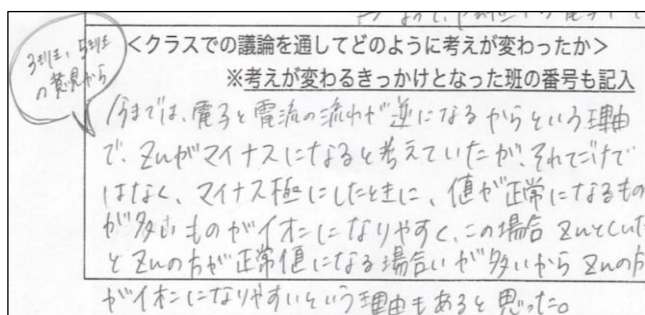 3班、5班
の意見から
<クラスでの議論を通してどのように考えが変わったか>
※考えが変わるきっかけとなった班の番号も記入
今までは、電子と電流の流れが逆になるからという理由
で、Znがマイナスになると考えていたが、それだけで
はなく、マイナス極にしたときに、値が正常になるもの
が多いものがイオンになりやすく、この場合ZnとCuだ
とZnの方が正常値になる場合いが多いからZnの方
がイオンになりやすいという理由もあると思った。